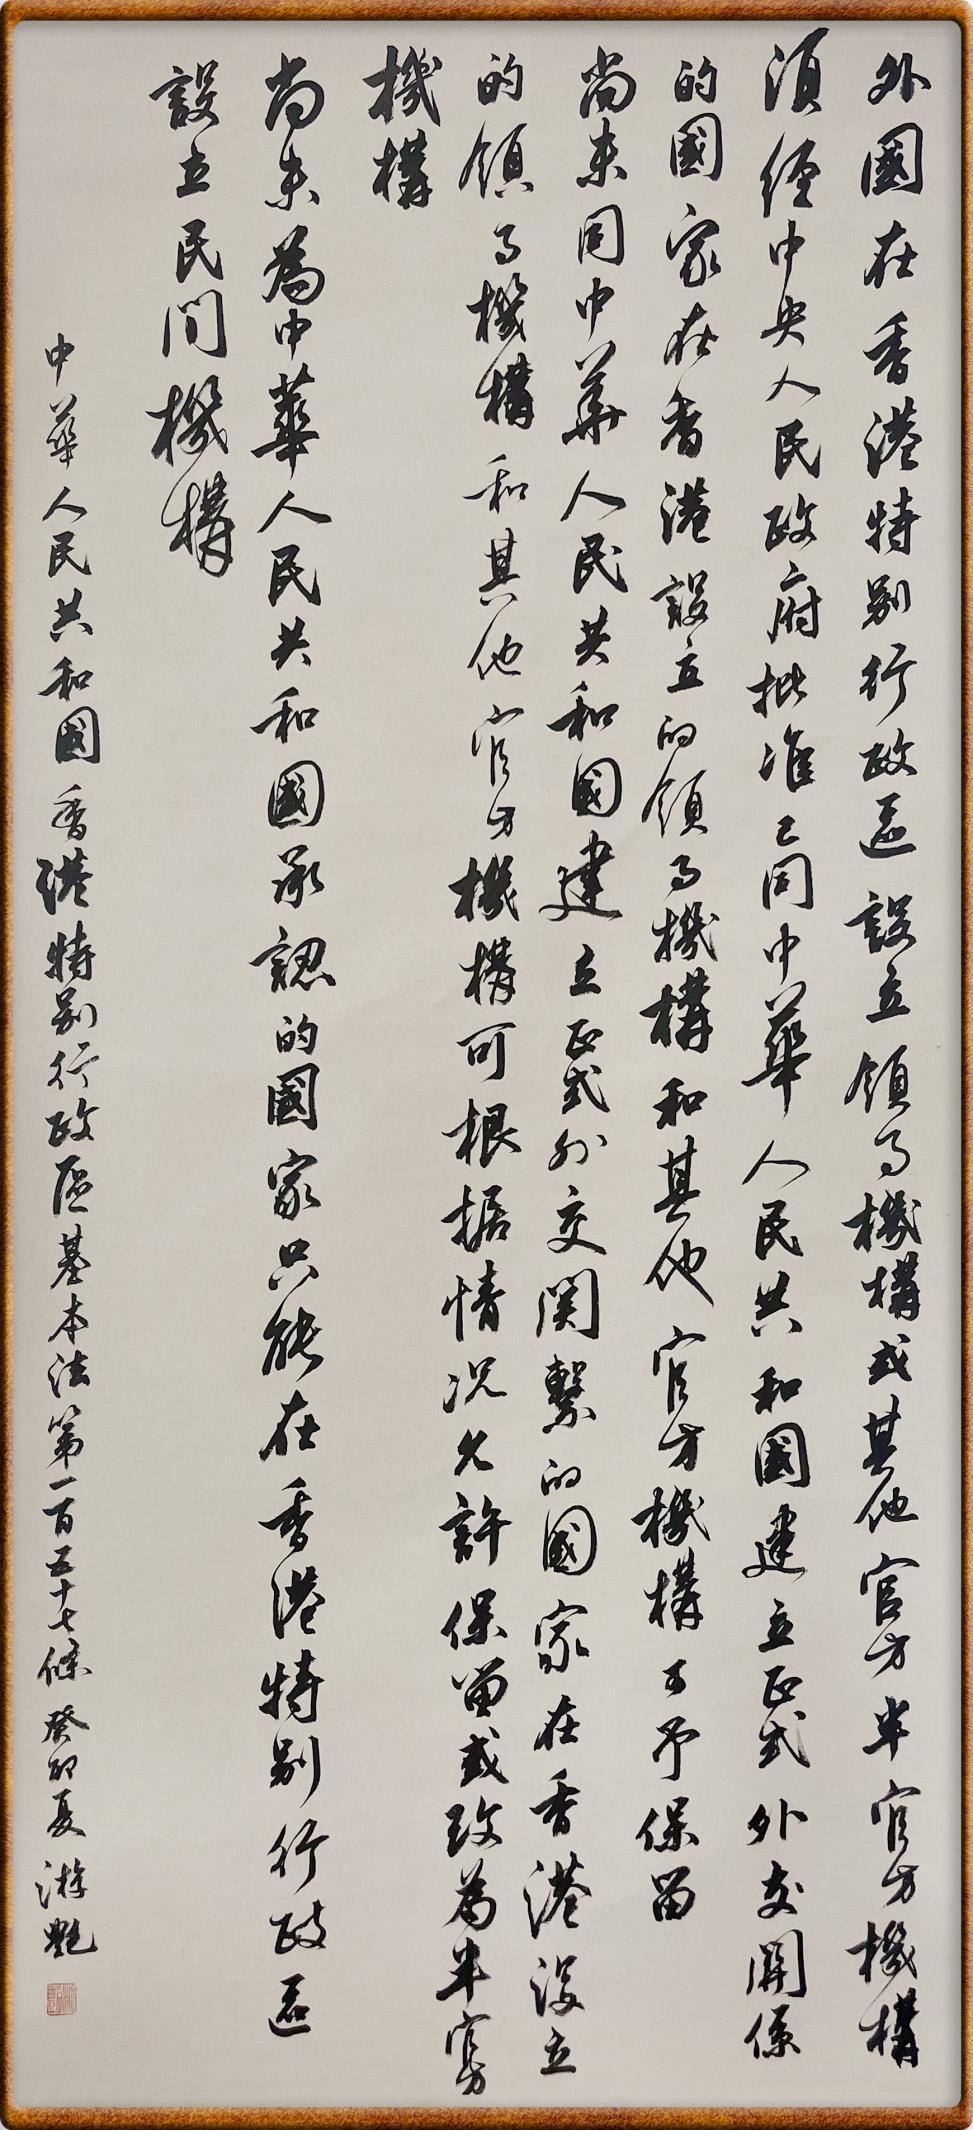 外國在香港特别行政區設立領事機構或其他官方半官方機構
須經中央人民政府批准已同中華人民共和國建立正式外交關係
的國家在香港設立的領事機構和其他官方機構可予保留
尚未同中華人民共和國建立正式外交関繫的國家在香港設立
的領事機構和其他官方機構可根据情况允許保留或改為半官方
機構
尚未為中華人民共和國承認的國家只能在香港特别行政區
設立民间機構
中華人民共和國香港特别行政區基本法第一百五十七條癸卯夏游艷